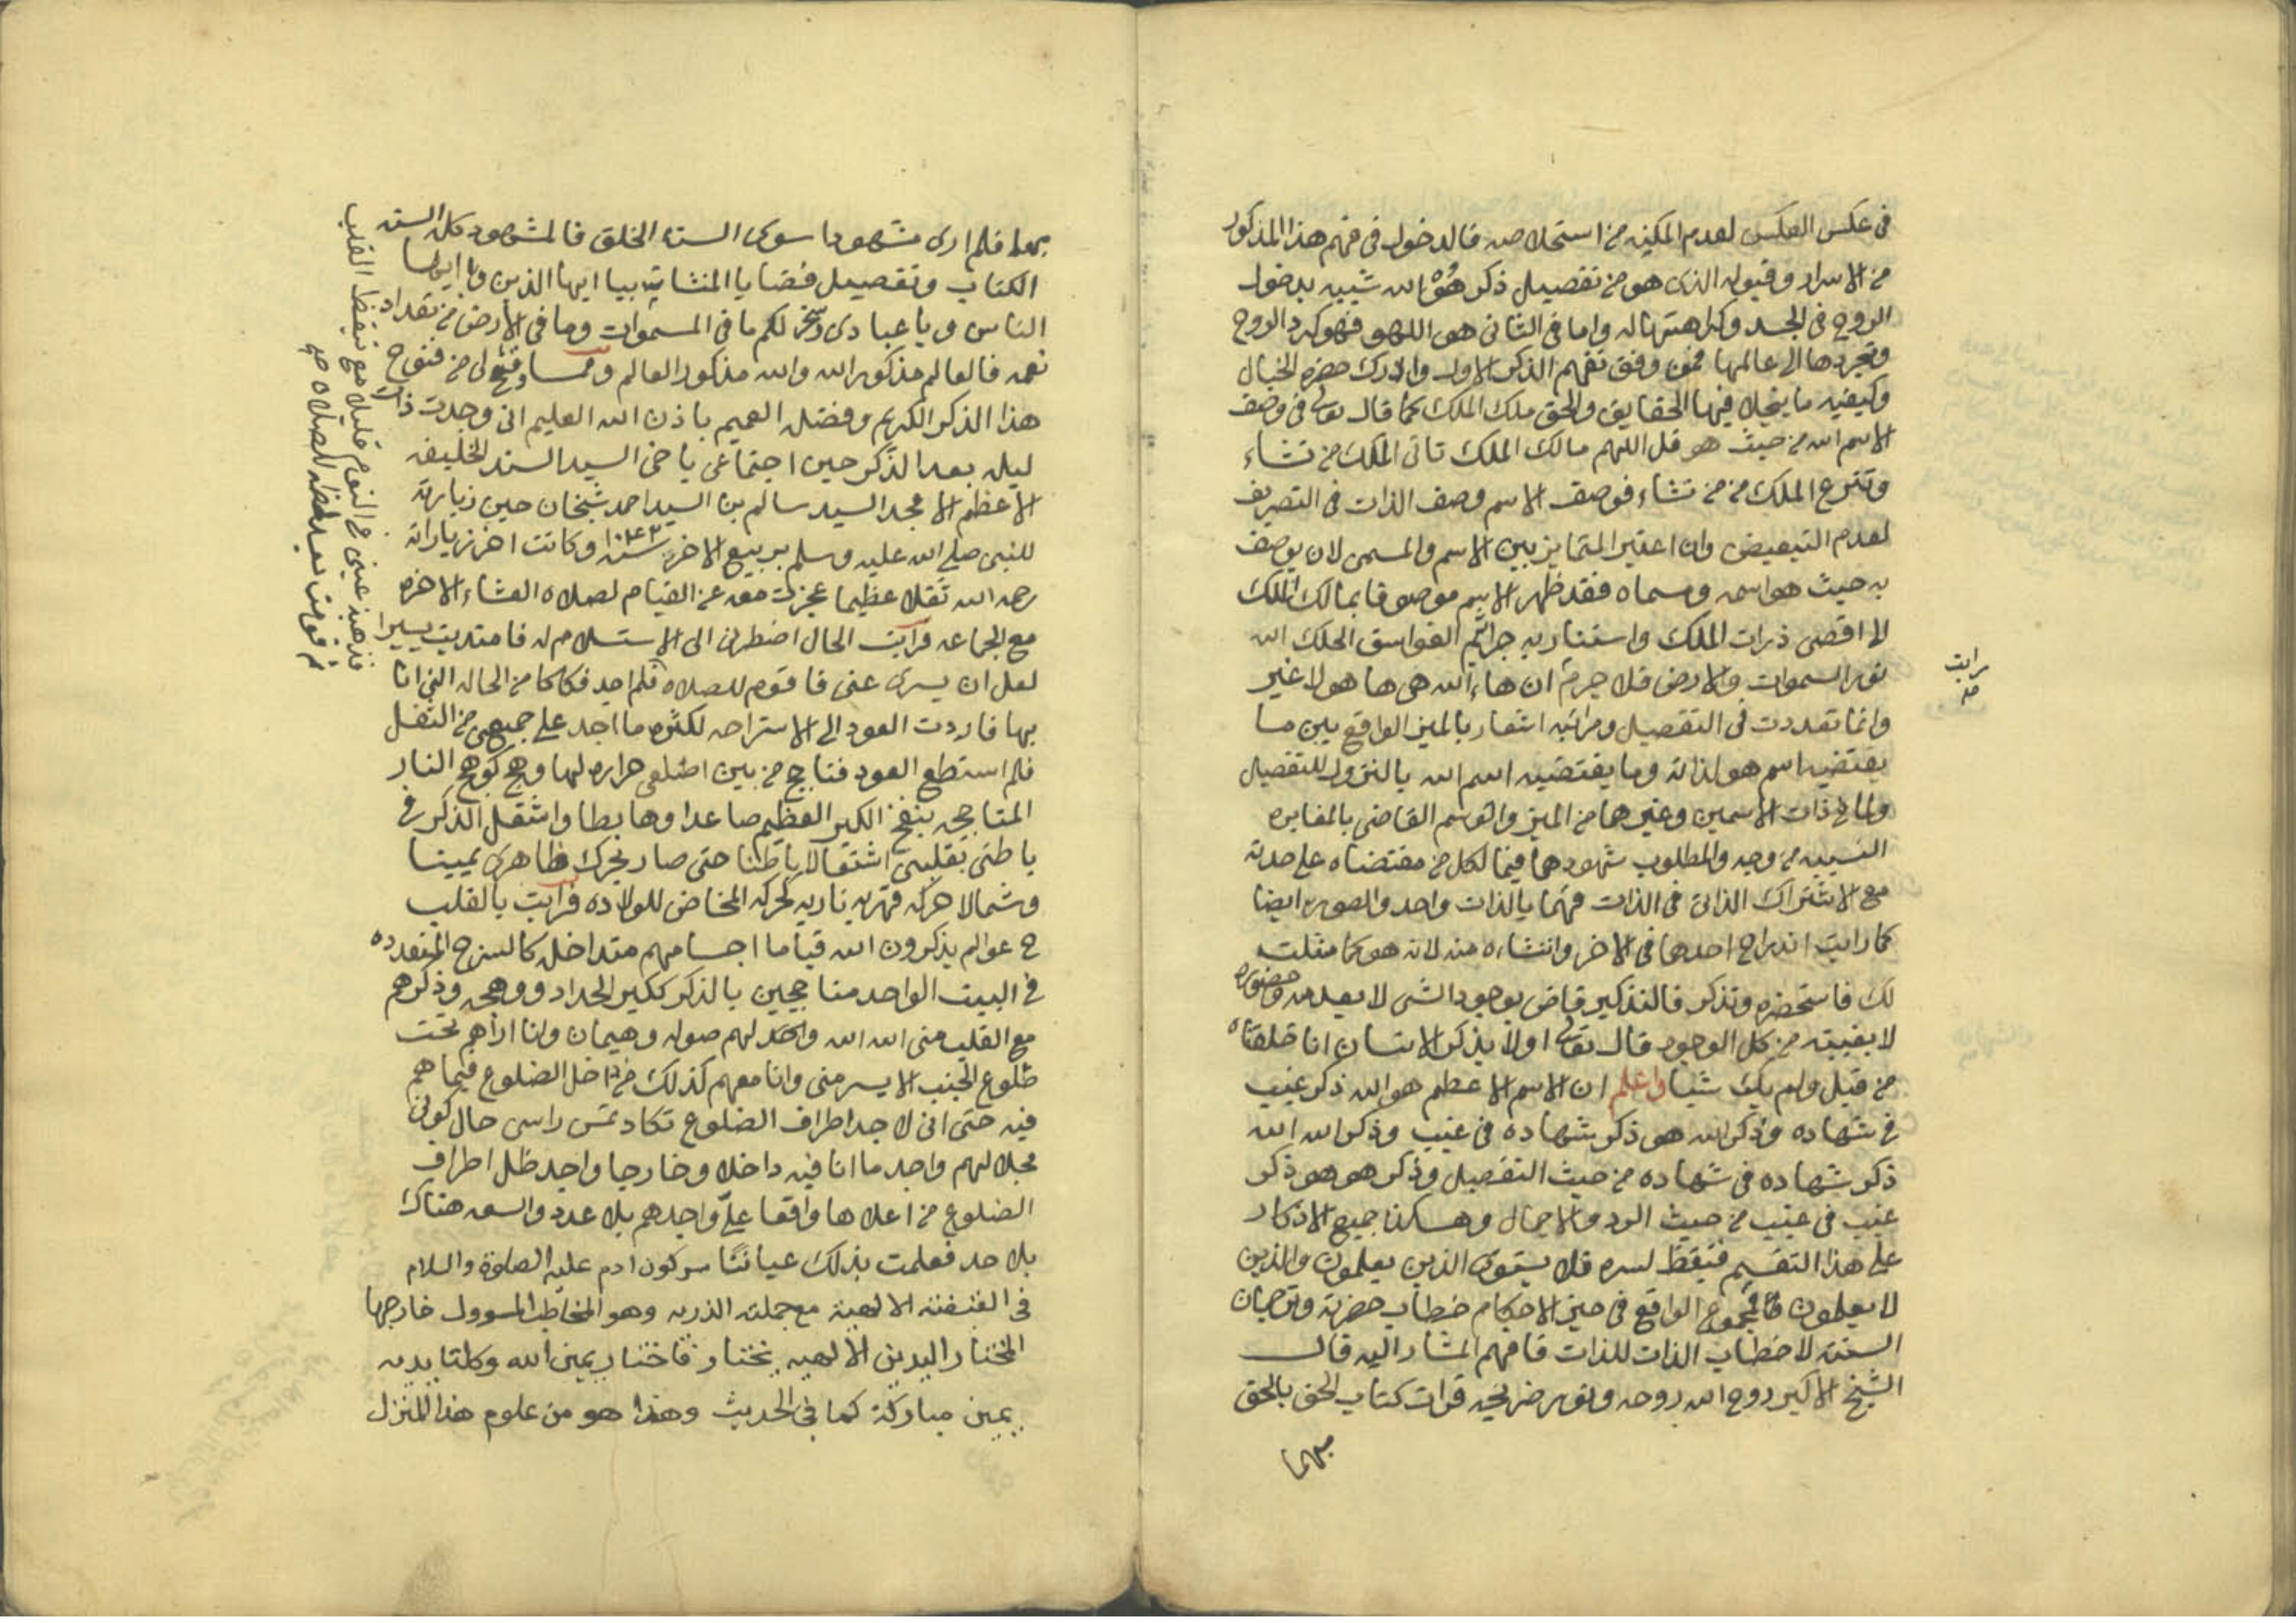 في عكس العكس لعدم المكنه من استخلاصه فالدخول في فهم هذا المذكور
من الاسرار وقبوله الذي هو من تفصيل ذكر هو الله شبيه بدخول
الروح في الجسد وكراهتها له واما في الثاني هو اللهو فهو كرد الروح
وتجردها الى عالمها فمن وفق تفهم الذكر الاول والادرك حضرة الخيال
وكيفيه ما ينجلا فيها الحقايق والحق ملك الملك كما قال تعالى في وصف
الاسم الله من حيث هو قل اللهم مالك الملك تاتى الملك من تشاء
وتنزع الملك من من تشاء فوصف الاسم وصف الذات في التصريف
لعدم التبعيض وان اعتبر التمايز بين الاسم والمسمى لان يوصف
به حيث هو اسمه ومسماه فقد ظهر الاسم موصوفا بمالك الملك
الى اقصى ذرات الملك واستنار به جراثيم الغواسق الحلك الله
نور السموات والارض فلا جرم ان هاء الله هي ها هو لا غير
وانما تعددت في التفصيل ومراتبه اشعار بالميز الواقع بين ما
يقتضيه اسم هو لذاته وما يقتضيه اسم الله بالنزول للتفصيل
ولما في ذات الاسمين وغيرهما من الميز والوسم القاضي بالمغايره
النسبيه من وجه والمطلوب شهودهما فيما لكل من مقتضاه على حدته
مع الاشتراك الذاتي في الذات فهما بالذات واحد والصوره ايضا
كما رايت اندراج احدها في الاخر وانتشاءه منه لانه هو كما مثلت
لك فاستحضره وتذكر فالتذكير قاض بوجود الشي لا بعدمه وحضوره
لا بغيبته من كل الوجود قال تعالى اولا يذكر الانسان انا خلقناه
من قبل ولم يك شيا واعلم ان الاسم الاعظم هو الله ذكر غيب
في شهاده وذكر الله هو ذكر شهاده في غيب وذكر الله الله
ذكر شهاده في شهاده من حيث التفصيل وذكر هو هو ذكر
غيب في غيب من حيث الرد والاجمال وهكذا جميع الاذكار
على هذا التقسيم فتيقظ لسره فلا يستوى الذين يعلمون والذين
لا يعلمون فالمجموع الواقع في حيز الاحكام خطاب حضرته وترجمان
السنته لا خطاب الذات للذات فافهم المشار اليه قال
الشيخ الاكبر روح الله روحه ونور ضريحه قرات كتاب الحق بالحق
رايت
صه
بهما فلم ارى مشهودا سوى السنة الخلق فالمشهود كل السنه
الكتاب وتفصيل قضايا المنشاته بيا ايها الذين ويا ايها
الناس ويا عبادى وسخر لكم ما في السموات وما في الارض من تعداد
نعمه فالعالم مذكور الله والله مذكور العالم ومما وفتح لى من فتوح
هذا الذكر الكريم وفضله العميم باذن الله العليم انى وجدت ذات
ليله بعد الذكر حين اجتماعى باخى السيد السند الخليفه
الاعظم الامجد السيد سالم بن السيد احمد شيخان حين زيارته
للنبي صلى الله عليه وسلم بربيع الاخر سنة ١٠٤٣ وكانت اخر زياراته
رحمه الله ثقلا عظيما عجزت معه عن القيام لصلاه العشاء الاخره
مع الجماعه فرايت الحال اضطرنى الى الاستسلام له فامتديت يسيرا
لعل ان يسرى عنى فاقوم للصلاه فلم اجد فكاكا من الحاله التي انا
بها فاردت العود الى الاستراحه لكثره ما اجد على جميعى من الثقل
فلم استطع العود فتاجج من بين اضلعى حراره لها وهج كوهج النار
المتاججه بنفخ الكير العظيم صاعدا وهابطا واشتغل الذكر في
باطنى بقلبى اشتغالا باطنا حتى صار يحرك ظاهرى يمينا
وشمالا حركه قهريه ناريه كحركه المخاض للولاده فرايت بالقلب
ح عوالم يذكرون الله قياما اجسامهم متداخله كالسرج المتعدده
في البيت الواحد متاججين بالذكر ككير الحداد ووهجه وذكرهم
مع القلب منى الله الله واجد لهم صوله وهيمان وانا اراهم تحت
ضلوع الجنب الايسر منى وانا معهم كذلك من داخل الضلوع فيما هم
فيه حتى انى لا جد اطراف الضلوع تكاد تمس راسى حال كونى
محلا لهم واجد ما انا فيه داخلا وخارجا واجد ظل اطراف
الضلوع من اعلاها واقعا علي واجدهم بلا عدد والسعه هناك
بلا حد فعلمت بذلك عيانا سر كون ادم عليه الصلوة والسلام
في القبضة الالهية مع جملة الذريه وهو المخاطب المسوول خارجها
المختار اليدين الالهيه يختار فاختار يمين الله وكلتا يديه
يمين مباركة كما في الحديث وهذا هو من علوم هذا المنزل
فذهبت عينى في النوم قليلا مع تيقظ القلب
ثم قومت بعد لحظه للصلاه صح
بهما